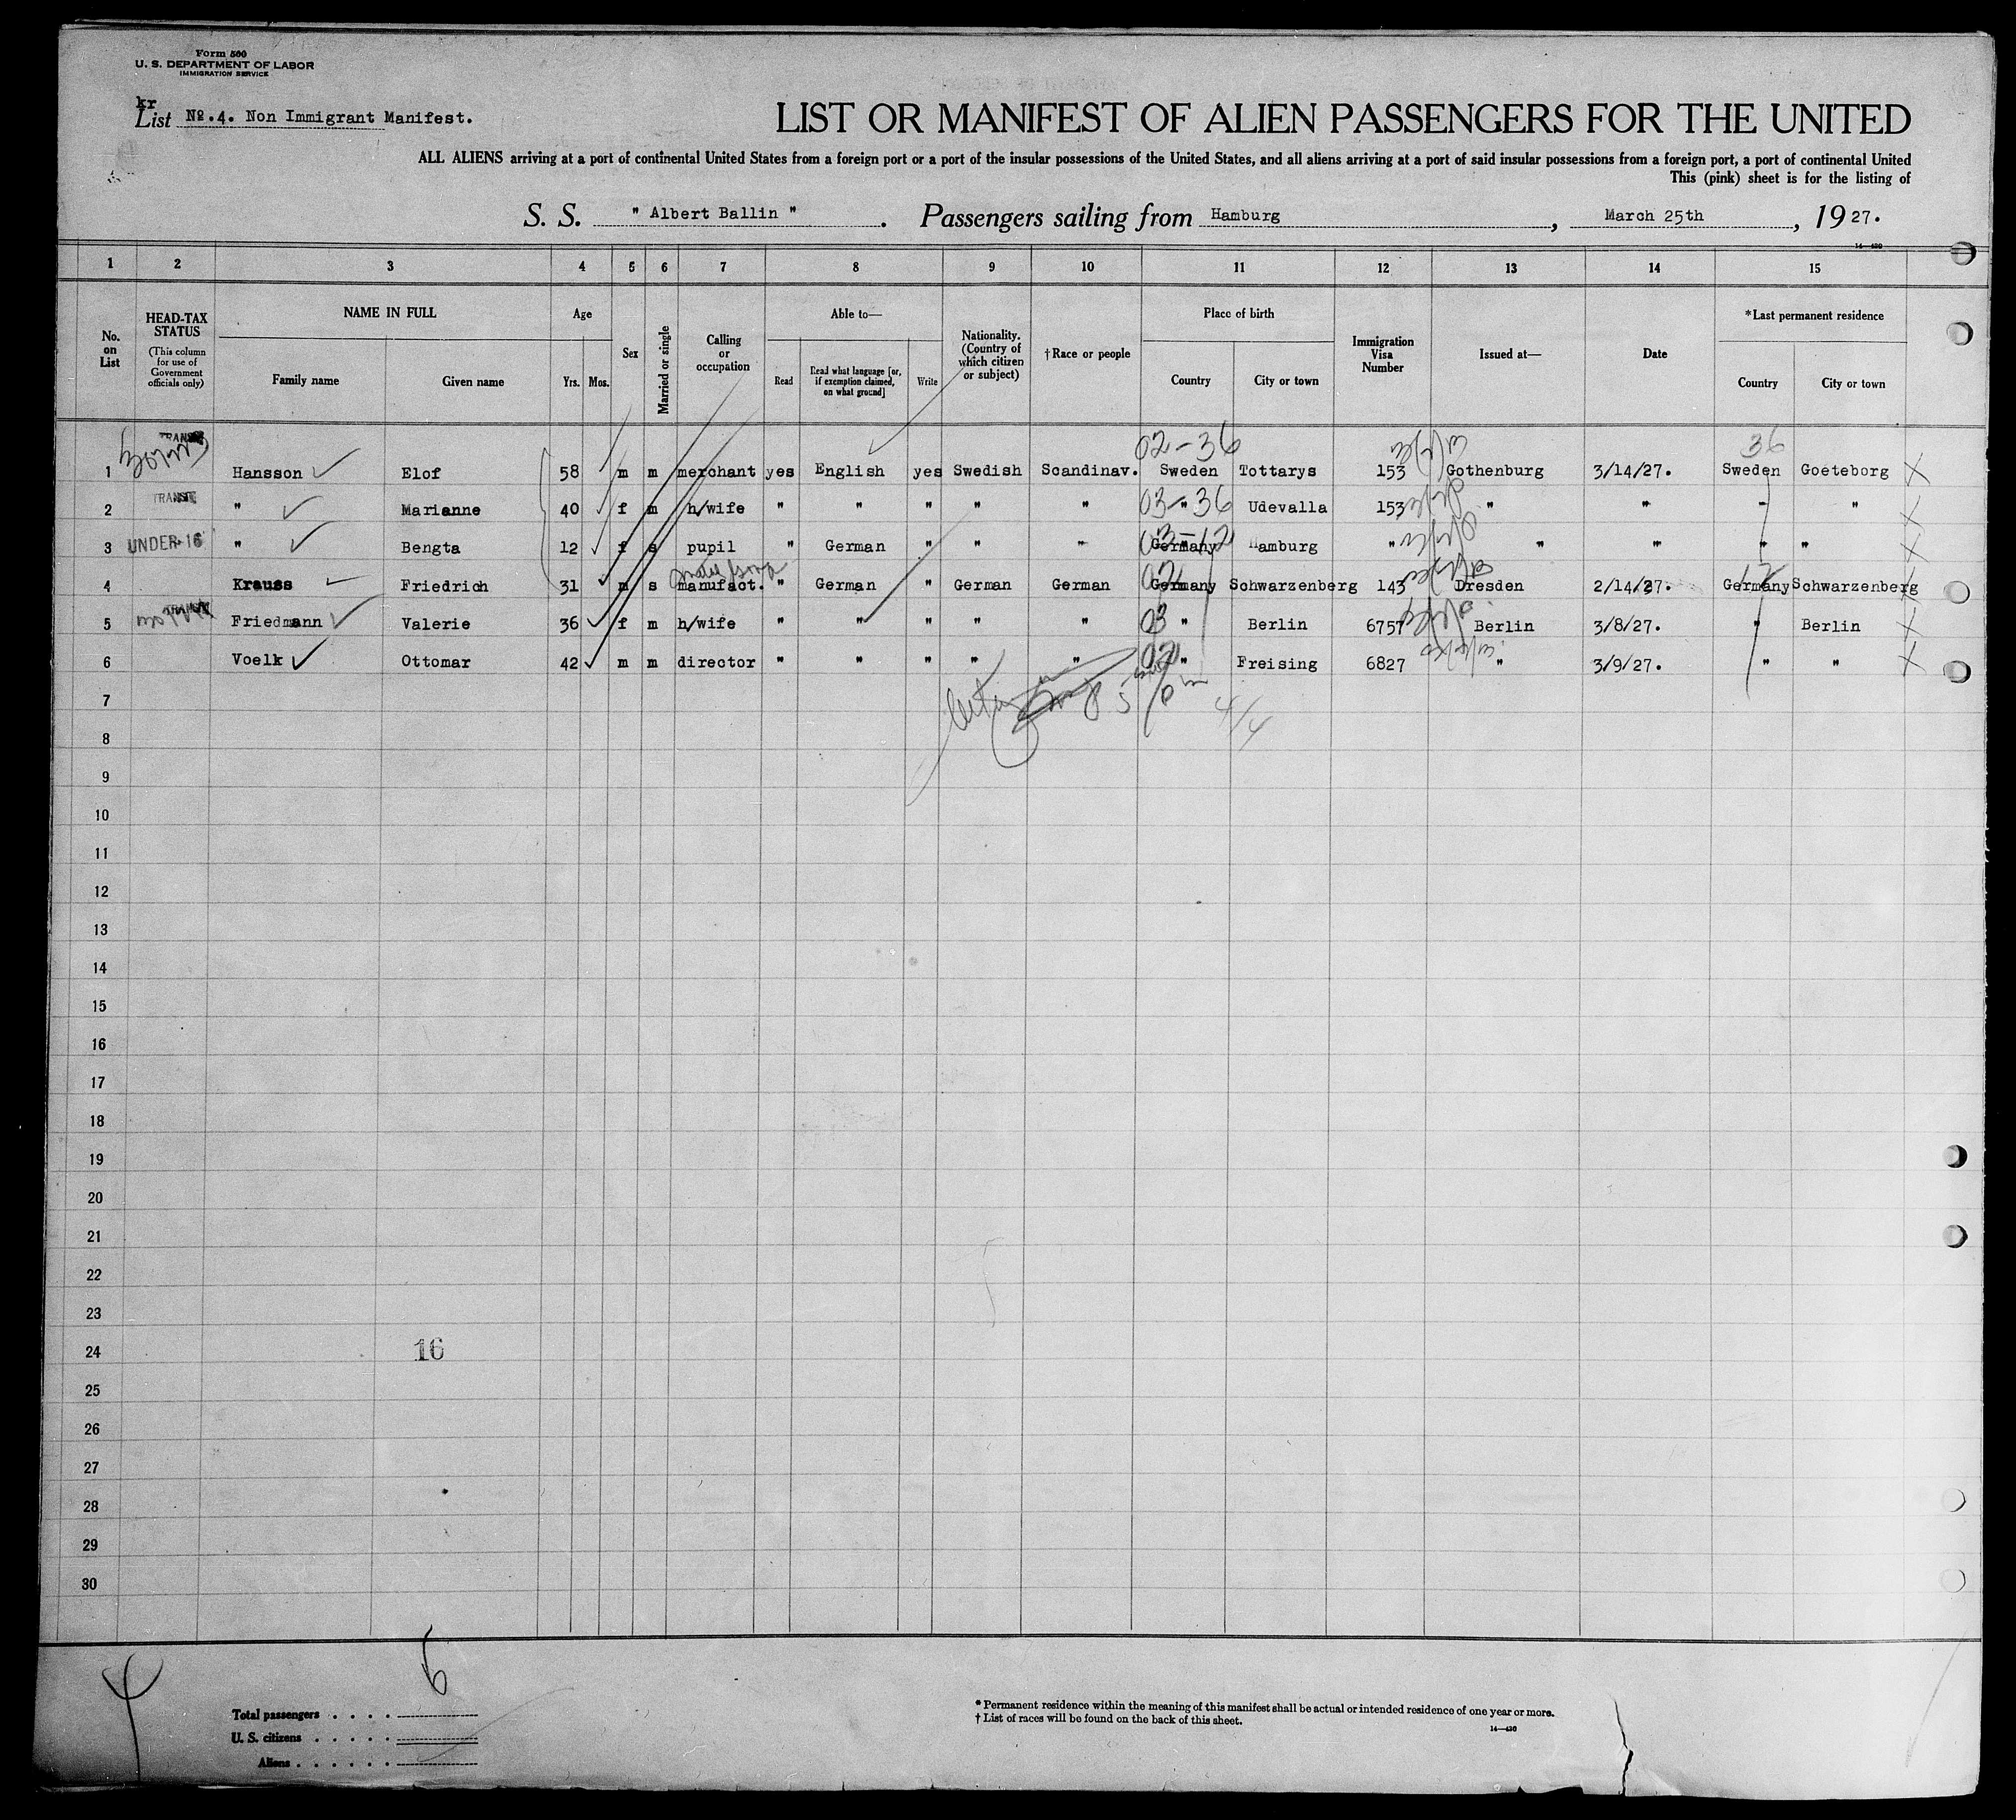 Form 500
U. S. DEPARTMENT OF LABOR
IMMIGRATION SERVICE
kr
List No. 4. Non Immigrant Manifest.
LIST OR MANIFEST OF ALIEN PASSENGERS FOR THE UNITED
ALL ALIENS arriving at a port of continental United States from a foreign port or a port of the insular possessions of the United States, and all aliens arriving at a port of said insular possessions from a foreign port, a port of continental United
This (pink) sheet is for the listing of
S. S. " Albert Ballin ". Passengers sailing from Hamburg, March 25th, 1927.
14—430
1 2 3 4 5 6 7 8 9 10 11 12 13 14 15
No. on List
HEAD-TAX STATUS (This column for use of Government officials only)
NAME IN FULL
Family name Given name
Age
Yrs. Mos.
Sex
Married or single
Calling or occupation
Able to—
Read Read what language [or, if exemption claimed, on what ground] Write
Nationality. (Country of which citizen or subject)
†Race or people
Place of birth
Country City or town
Immigration Visa Number
Issued at—
Date
*Last permanent residence
Country City or town
TRANSIT 02-36 36
1 Hansson Elof 58 m m merchant yes English yes Swedish Scandinav. Sweden Tottarys 153 Gothenburg 3/14/27. Sweden Goeteborg X
2 TRANSIT " Marianne 40 f m h/wife " " " " " 03-36 " Udevalla 153 " " " " X
3 UNDER-16 " Bengta 12 f s pupil " German " " " 03-12 Germany Hamburg " " " " " X
4 Krauss Friedrich 31 m s manufact. " German " German German 02 Germany Schwarzenberg 143 Dresden 2/14/27. 12 Germany Schwarzenberg X
5 TRANSIT Friedmann Valerie 36 f m h/wife " " " " " 03 " Berlin 6757 Berlin 3/8/27. " Berlin X
6 Voelk Ottomar 42 m m director " " " " " 02 " Freising 6827 " 3/9/27. " " X
7
4/4
8
9
10
11
12
13
14
15
16
17
18
19
20
21
22
23
24 16
25
26
27
28
29
30
4
6
Total passengers
U. S. citizens
Aliens
* Permanent residence within the meaning of this manifest shall be actual or intended residence of one year or more.
† List of races will be found on the back of this sheet.
14—430